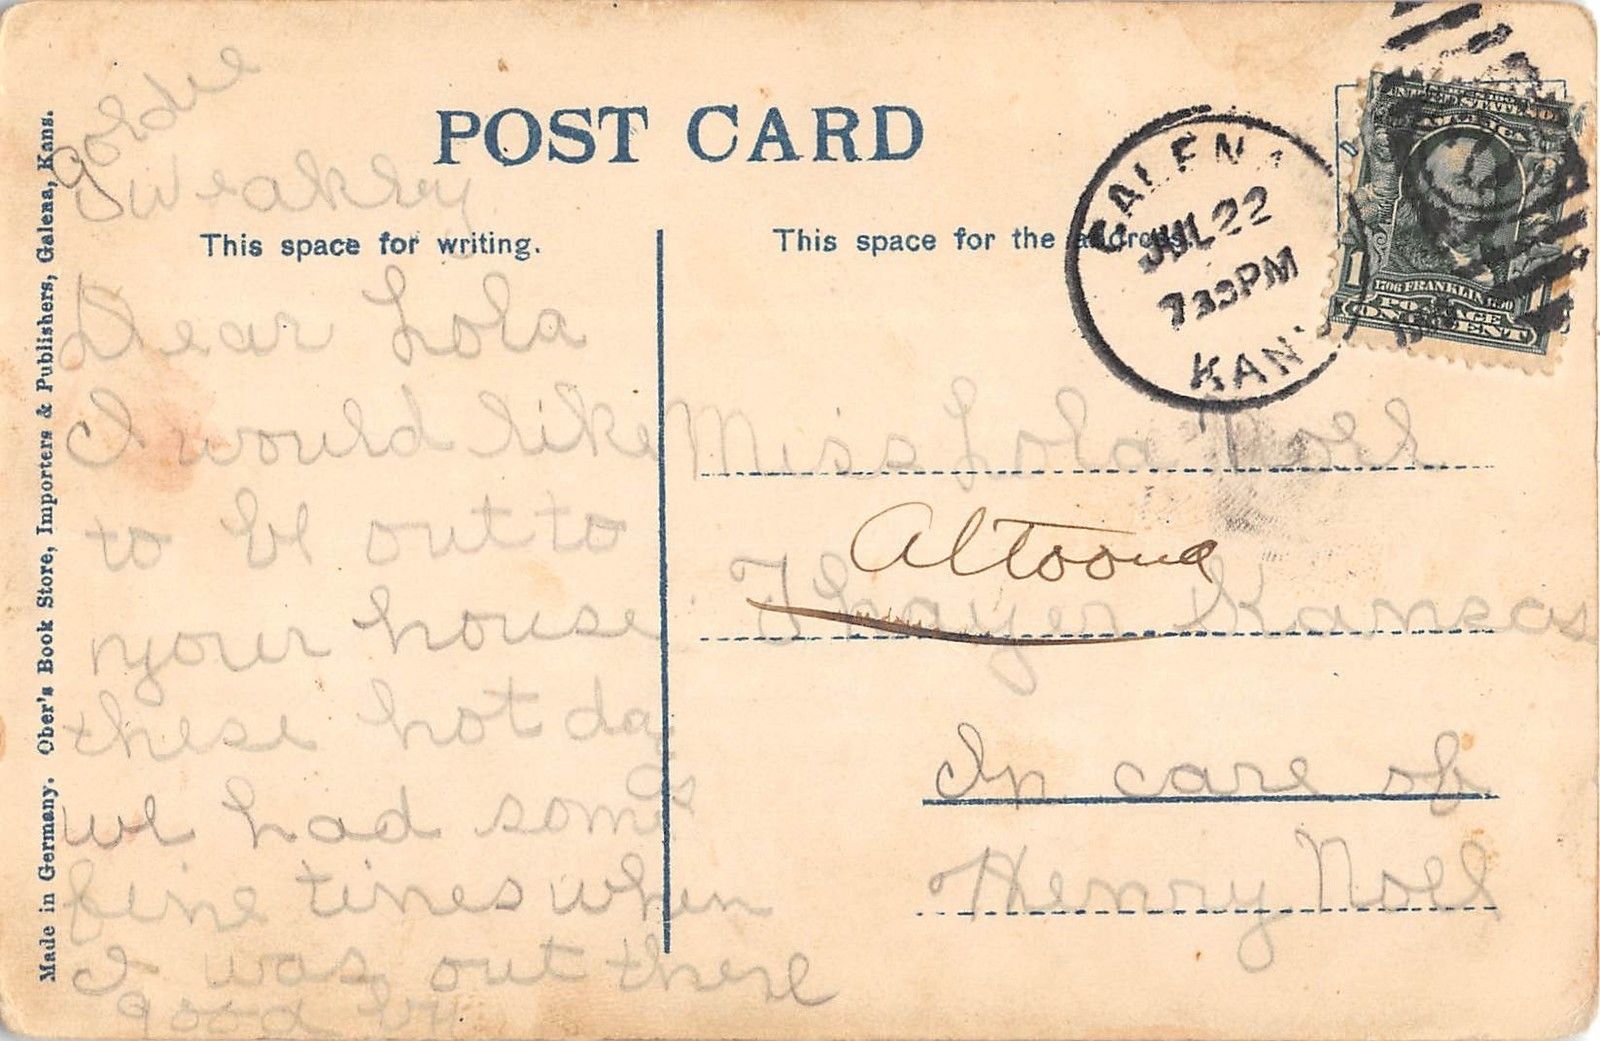 POST CARD
This space for writing.
This space for the address.
Made in Germany. Ober's Book Store, Importers & Publishers, Galena, Kans.
GALENA
JUL 22
730PM
KANS
1706 FRANKLIN 1790
POSTAGE
1 ONE CENT 1
Goldie
Weakley
Dear Lola
I would like
to be out to
your house
these hot days
we had some
fine times when
I was out there
good by
Miss Lola Noel
Altoona
Thayer Kansas
In care of
Henry Noel